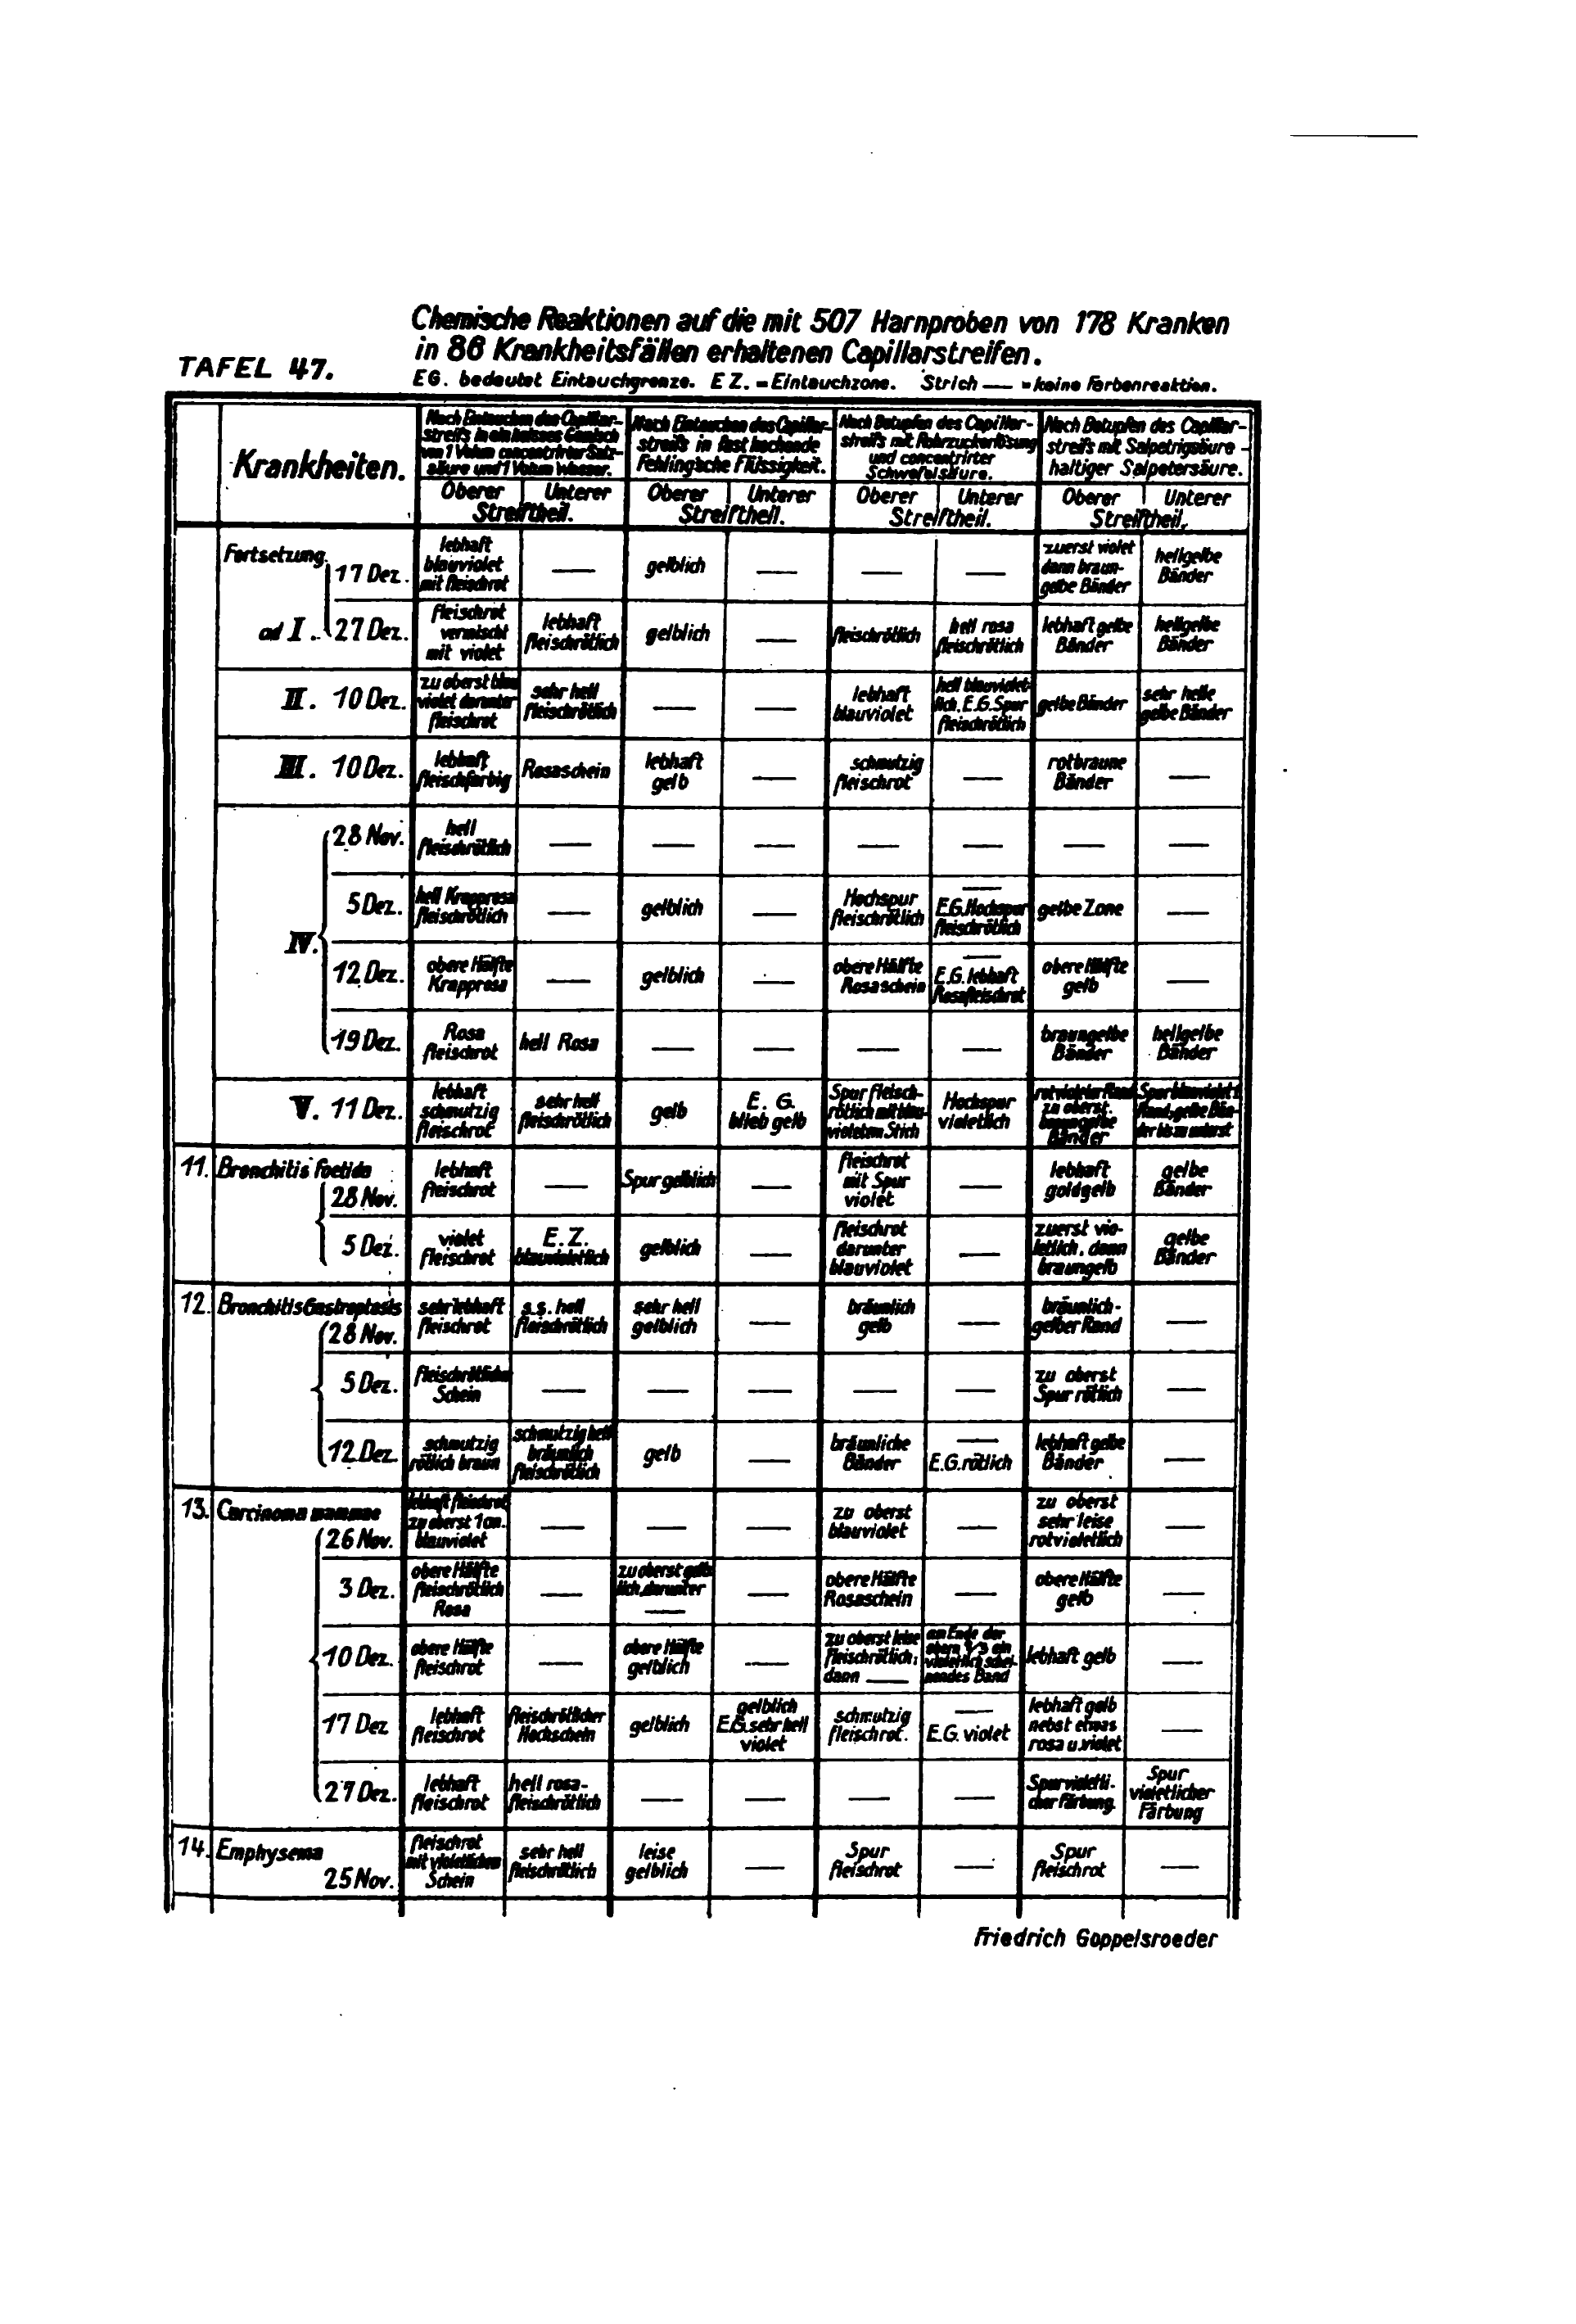 Chemische Reaktionen auf die mit 507 Harnproben von 178 Kranken
in 86 Krankheitsfällen erhaltenen Capillarstreifen.
TAFEL 47.
EG. bedeutet Eintauchgrenze. E Z. = Eintauchzone. Strich — = keine Farbenreaktion.
Krankheiten.
Nach Eintauchen des Capillar-
streifs in ein heisses Gemisch
von 1 Volum concentrirter Salz-
säure und 1 Volum Wasser.
Nach Eintauchen des Capillar-
streifs in fast kochende
Fehling'sche Flüssigkeit.
Nach Betupfen des Capillar-
streifs mit Rohrzuckerlösung
und concentrirter
Schwefelsäure.
Nach Betupfen des Capillar-
streifs mit Salpetrigsäure -
haltiger Salpetersäure.
Oberer Unterer
Streiftheil.
Oberer Unterer
Streiftheil.
Oberer Unterer
Streiftheil.
Oberer Unterer
Streiftheil.
Fortsetzung.
ad I.
17 Dez.
lebhaft
blauviolet
mit fleischrot
—
gelblich
—
—
—
zuerst violet
dann braun-
gelbe Bänder
hellgelbe
Bänder
27 Dez.
fleischrot
vermischt
mit violet
lebhaft
fleischrötlich
gelblich
—
fleischrötlich
hell rosa
fleischrötlich
lebhaft gelbe
Bänder
hellgelbe
Bänder
II. 10 Dez.
zu oberst blau
violet darunter
fleischrot
sehr hell
fleischrötlich
—
—
lebhaft
blauviolet
hell blauviolet-
lich. E.G. Spur
fleischrötlich
gelbe Bänder
sehr helle
gelbe Bänder
III. 10 Dez.
lebhaft
fleischfarbig
Rosaschein
lebhaft
gelb
—
schmutzig
fleischrot
—
rotbraune
Bänder
—
IV.
28 Nov.
hell
fleischrötlich
—
—
—
—
—
—
—
5 Dez.
hell Krapprosa
fleischrötlich
—
gelblich
—
Hochspur
fleischrötlich
—
E.G. Hochspur
fleischrötlich
gelbe Zone
—
12 Dez.
obere Hälfte
Krapprosa
—
gelblich
—
obere Hälfte
Rosaschein
—
E.G. lebhaft
Rosafleischrot
obere Hälfte
gelb
—
19 Dez.
Rosa
fleischrot
hell Rosa
—
—
—
—
braungelbe
Bänder
hellgelbe
Bänder
V. 11 Dez.
lebhaft
schmutzig
fleischrot
sehr hell
fleischrötlich
gelb
E. G.
blieb gelb
Spur fleisch-
rötlich mit blau-
violetem Stich
Hochspur
violetlich
rotvioleter Rand
zu oberst.
braungelbe
Bänder
Spur blauviolet
Rand, gelbe Bän-
der bis zu unterst
11. Bronchitis foetida
28 Nov.
lebhaft
fleischrot
—
Spur gelblich
—
fleischrot
mit Spur
violet
—
lebhaft
goldgelb
gelbe
Bänder
5 Dez.
violet
fleischrot
E. Z.
blauvioletlich
gelblich
—
fleischrot
darunter
blauviolet
—
zuerst vio-
letlich, dann
braungelb
gelbe
Bänder
12. Bronchitis Gastroptosis
28 Nov.
sehr lebhaft
fleischrot
s.s. hell
fleischrötlich
sehr hell
gelblich
—
bräunlich
gelb
—
bräunlich-
gelber Rand
—
5 Dez.
fleischrötlicher
Schein
—
—
—
—
—
zu oberst
Spur rötlich
—
12 Dez.
schmutzig
rötlich braun
schmutzig hell
bräunlich
fleischrötlich
gelb
—
bräunliche
Bänder
—
E.G. rötlich
lebhaft gelbe
Bänder
—
13. Carcinoma mammae
26 Nov.
lebhaft fleischrot
zu oberst 1 cm.
blauviolet
—
—
—
zu oberst
blauviolet
—
zu oberst
sehr leise
rotvioletlich
—
3 Dez.
obere Hälfte
fleischrötlich
Rosa
—
zu oberst gelb-
lich, darunter
—
—
obere Hälfte
Rosaschein
—
obere Hälfte
gelb
—
10 Dez.
obere Hälfte
fleischrot
—
obere Hälfte
gelblich
—
zu oberst leise
fleischrötlich;
dann —
am Ende der
obern 2/3 ein
violetlich schei-
nendes Band
lebhaft gelb
—
17 Dez
lebhaft
fleischrot
fleischrötlicher
Hochschein
gelblich
gelblich
E.G. sehr hell
violet
schmutzig
fleischrot.
—
E.G. violet
lebhaft gelb
nebst etwas
rosa u. violet
—
27 Dez.
lebhaft
fleischrot
hell rosa-
fleischrötlich
—
—
—
—
Spur violetli-
cher Färbung.
Spur
violetlicher
Färbung
14. Emphysema
25 Nov.
fleischrot
mit violetlichem
Schein
sehr hell
fleischrötlich
leise
gelblich
—
Spur
fleischrot
—
Spur
fleischrot
—
Friedrich Goppelsroeder